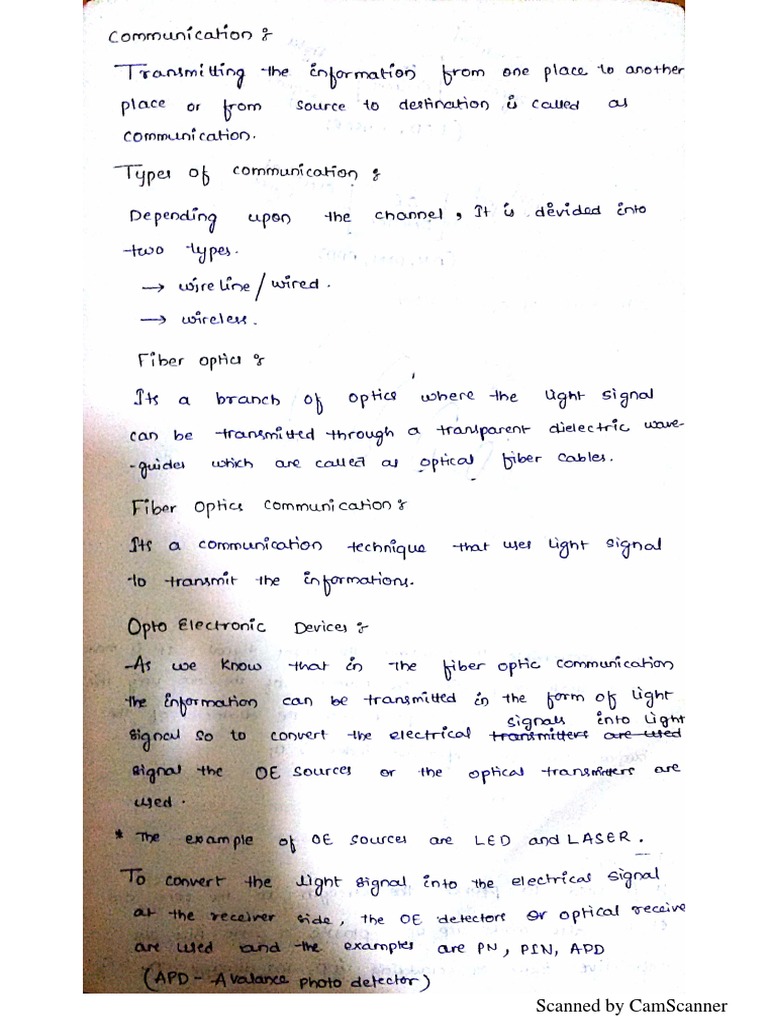 Communication :
Transmitting the information from one place to another
place or from source to destination is called as
communication.
Types of communication :
Depending upon the channel, It is devided into
two types.
→ wire line / wired.
→ wireless.
Fiber optics :
Its a branch of optics where the light signal
can be transmitted through a transparent dielectric wave-
-guides which are called as optical fiber cables.
Fiber Optics communication :
Its a communication technique that uses light signal
to transmit the informations.
Opto Electronic Devices :
As we know that in the fiber optic communication
the information can be transmitted in the form of light
signals into light
signal so to convert the electrical transmitters are used
signal the OE sources or the optical transmitters are
used.
* The example of OE sources are LED and LASER.
To convert the light signal into the electrical signal
at the receiver side, the OE detectors or optical receive
are used and the examples are PN, PIN, APD
(APD - Avalance photo detector)
Scanned by CamScanner